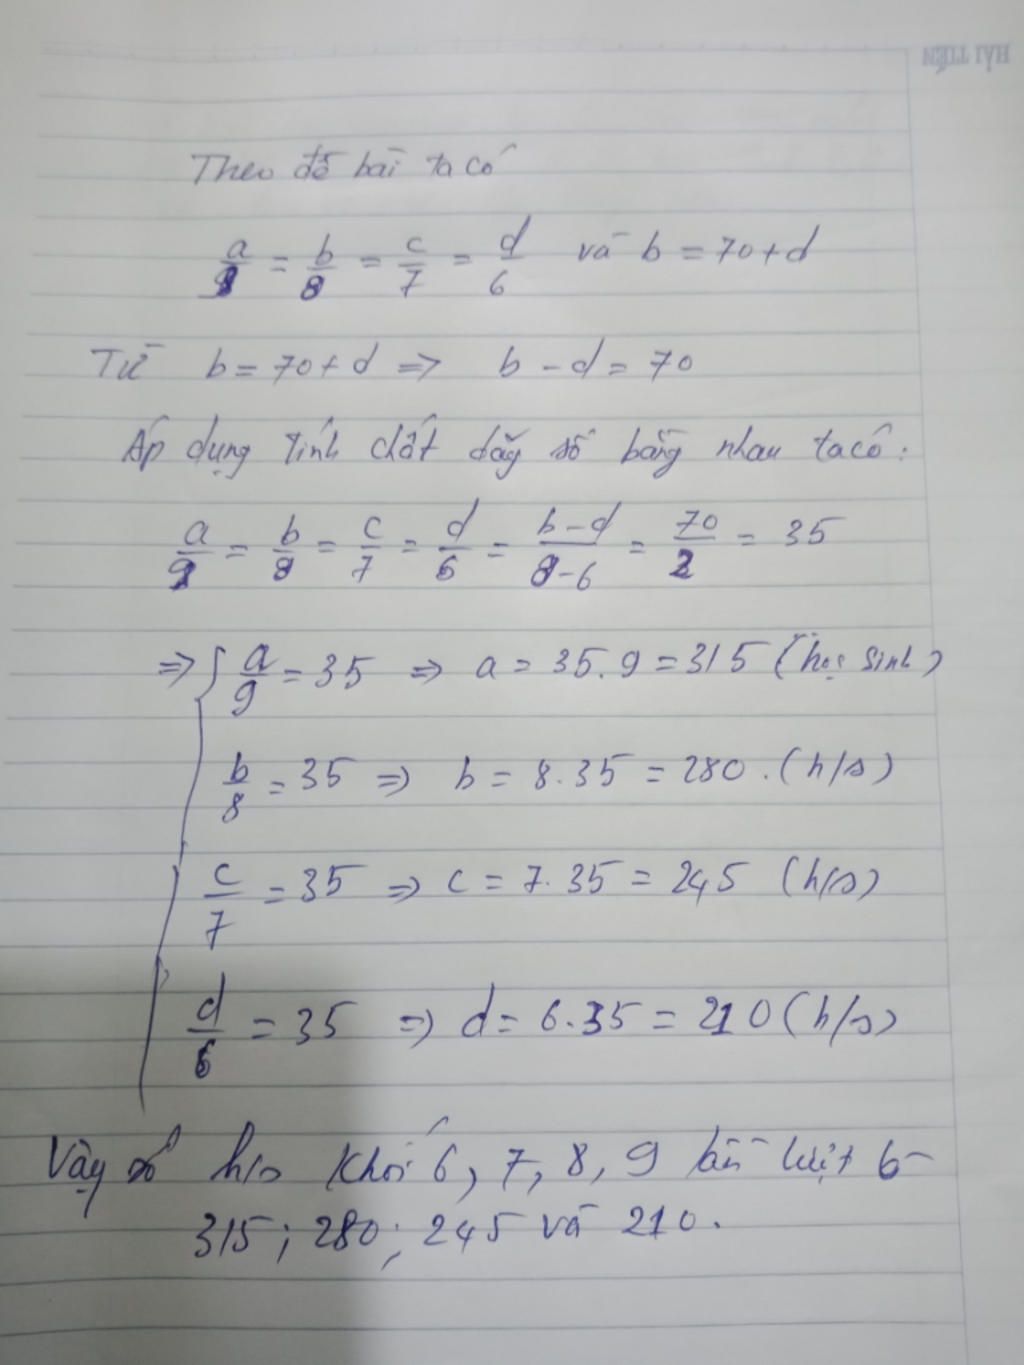 HẢI TIẾN
Theo đề bài ta có
a/9 = b/8 = c/7 = d/6 và b = 70 + d
Từ b = 70 + d => b - d = 70
Áp dụng tính chất dãy số bằng nhau ta có:
a/9 = b/8 = c/7 = d/6 = b-d/8-6 = 70/2 = 35
=> { a/9 = 35 => a = 35.9 = 315 (học sinh)
b/8 = 35 => b = 8.35 = 280. (h/s)
c/7 = 35 => c = 7.35 = 245 (h/s)
d/6 = 35 => d = 6.35 = 210 (h/s)
Vậy số h/s khối 6, 7, 8, 9 lần lượt
315; 280; 245 và 210.